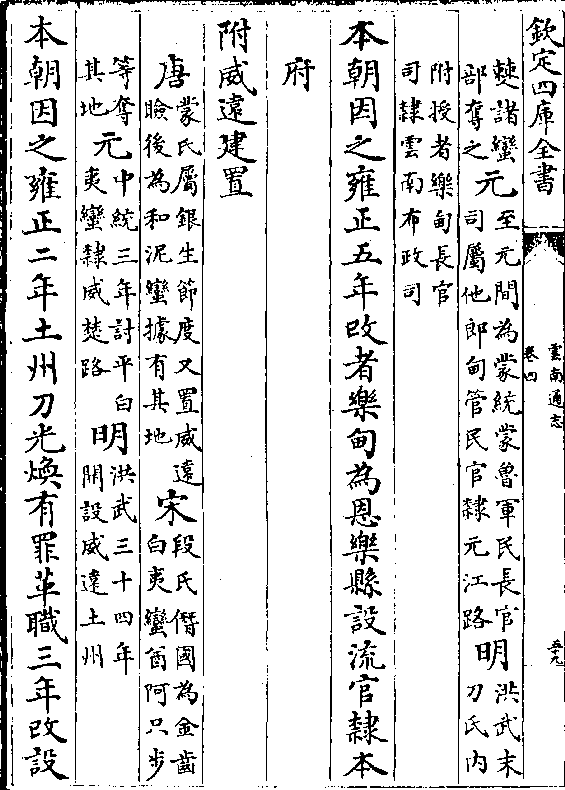 欽定四庫全書
雲南通志
卷四
五十九
諸蠻
部奪之
元
至元間為蒙統蒙魯軍民長官
司屬他郎甸管民官隸元江路
明
洪武末
刀氏内
附授者樂甸長官
司隸雲南布政司
本朝因之雍正五年改者樂甸為恩樂縣設流官隸本
府
附威遠建置
唐
蒙氏屬銀生節度又置威遠
瞼後為和泥蠻據有其地
宋
段氏僭國為金齒
白夷蠻酋阿只步
等奪
其地
元
中統三年討平白
夷蠻隸威楚路
明
洪武三十四年
開設威遠土州
本朝因之雍正二年土州刀光煥有罪革職三年改設